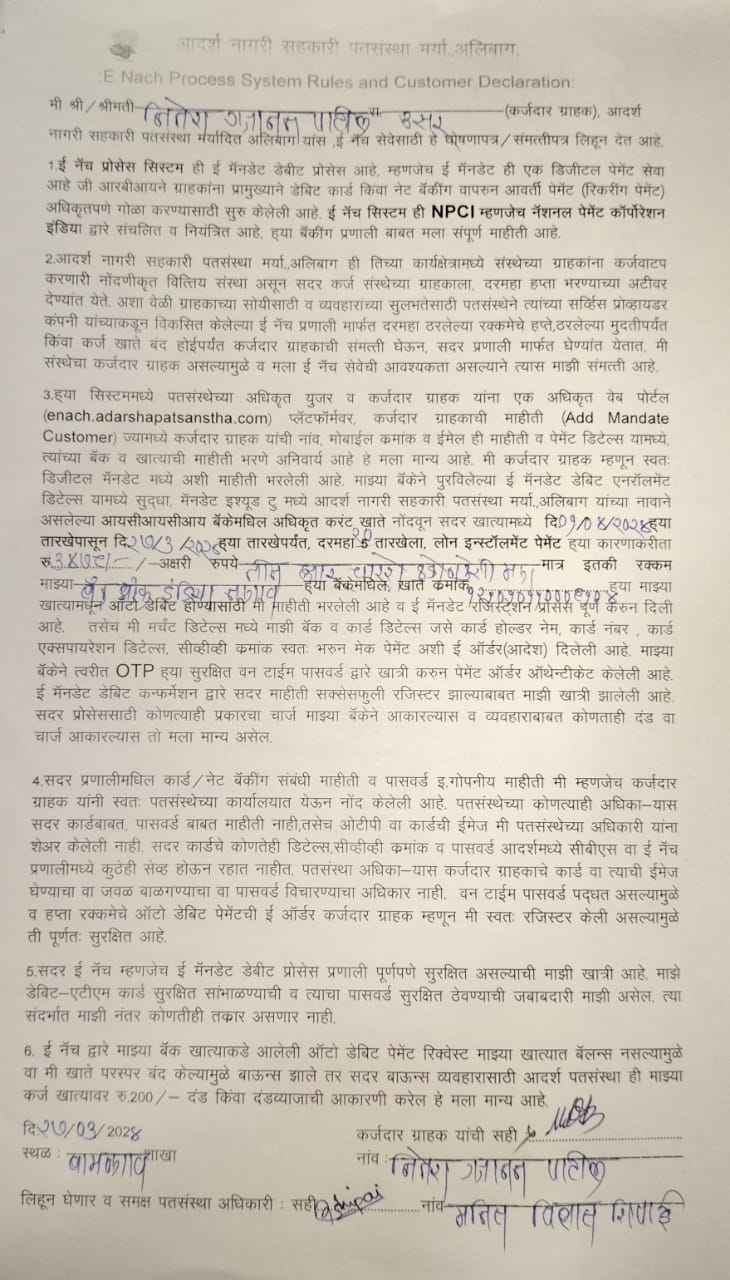 आदर्श नागरी सहकारी पतसंस्था मर्या.,अलिबाग.
:E Nach Process System Rules and Customer Declaration:
मी श्री/श्रीमती नितेश गजानन पाटील रा उसर (कर्जदार ग्राहक), आदर्श
नागरी सहकारी पतसंस्था मर्यादित अलिबाग यांस ,ई नॅच सेवेसाठी हे घोषणापत्र/संमत्तीपत्र लिहून देत आहे.
1.ई नॅच प्रोसेस सिस्टम ही ई मॅनडेट डेबीट प्रोसेस आहे, म्हणजेच ई मॅनडेट ही एक डिजीटल पेमेंट सेवा
आहे जी आरबीआयने ग्राहकांना प्रामुख्याने डेबिट कार्ड किंवा नेट बॅकींग वापरुन आवर्ती पेमेंट (रिकरींग पेमेंट)
अधिकृतपणे गोळा करण्यासाठी सुरु केलेली आहे. ई नॅच सिस्टम ही NPCI म्हणजेच नॅशनल पेमेंट कॉर्पोरेशन
इंडिया द्वारे संचलित व नियंत्रित आहे, ह्या बॅकींग प्रणाली बाबत मला संपूर्ण माहीती आहे.
2.आदर्श नागरी सहकारी पतसंस्था मर्या.,अलिबाग ही तिच्या कार्यक्षेत्रामध्ये संस्थेच्या ग्राहकांना कर्जवाटप
करणारी नोंदणीकृत वित्तिय संस्था असून सदर कर्ज संस्थेच्या ग्राहकाला, दरमहा हप्ता भरण्याच्या अटीवर
देण्यांत येते. अशा वेळी ग्राहकाच्या सोयीसाठी व व्यवहारांच्या सुलभतेसाठी पतसंस्थेने त्यांच्या सर्व्हिस प्रोव्हायडर
कंपनी यांच्याकडून विकसित केलेल्या ई नॅच प्रणाली मार्फत दरमहा ठरलेल्या रक्कमेचे हप्ते,ठरलेल्या मुदतीपर्यंत
किंवा कर्ज खाते बंद होईपर्यंत कर्जदार ग्राहकाची संमत्ती घेऊन, सदर प्रणाली मार्फत घेण्यांत येतात, मी
संस्थेचा कर्जदार ग्राहक असल्यामुळे व मला ई नॅच सेवेची आवश्यकता असल्याने त्यास माझी संमत्ती आहे.
3.ह्या सिस्टममध्ये पतसंस्थेच्या अधिकृत युजर व कर्जदार ग्राहक यांना एक अधिकृत वेब पोर्टल
(enach.adarshapatsanstha.com) प्लॅटफॉर्मवर, कर्जदार ग्राहकाची माहीती (Add Mandate
Customer) ज्यामध्ये कर्जदार ग्राहक यांची नांव, मोबाईल क्रमांक व ईमेल ही माहीती व पेमेंट डिटेल्स यामध्ये,
त्यांच्या बॅक व खात्याची माहीती भरणे अनिवार्य आहे हे मला मान्य आहे. मी कर्जदार ग्राहक म्हणून स्वतः
डिजीटल मॅनडेट मध्ये अशी माहीती भरलेली आहे. माझ्या बॅकेने पुरविलेल्या ई मॅनडेट डेबिट एनरॉलमेंट
डिटेल्स यामध्ये सुद्धा, मॅनडेट इश्यूड टु मध्ये आदर्श नागरी सहकारी पतसंस्था मर्या.,अलिबाग यांच्या नावाने
असलेल्या आयसीआयसीआय बॅकेमधिल अधिकृत करंट खाते नोंदवून सदर खात्यामध्ये दि०१/०४/२०२४ह्या
तारखेपासून दि२७/३/२०२८ह्या तारखेपर्यंत, दरमहा तारखेला, लोन इन्स्टॉलमेंट पेमेंट ह्या कारणाकरीता
रु ३४७९/-/-अक्षरी रुपये तीन हजार चारशे एकोणऐंशी मात्र इतकी रक्कम
माझ्या बँक ऑफ इंडिया ह्या बॅकेमधिल, खाते क्रमांक ह्या माझ्या
खात्यामधून ऑटो डेबिट होण्यासाठी मी माहीती भरलेली आहे व ई मॅनडेट रजिस्टेशन प्रोसेस पूर्ण करुन दिली
आहे. तसेच मी मर्चंट डिटेल्स मध्ये माझी बॅक व कार्ड डिटेल्स जसे कार्ड होल्डर नेम, कार्ड नंबर , कार्ड
एक्सपायरेशन डिटेल्स, सीव्हीव्ही क्रमांक स्वतः भरुन मेक पेमेंट अशी ई ऑर्डर(आदेश) दिलेली आहे. माझ्या
बॅकेने त्वरीत OTP ह्या सुरक्षित वन टाईम पासवर्ड द्वारे खात्री करुन पेमेंट ऑर्डर ऑथेन्टीकेट केलेली आहे.
ई मॅनडेट डेबिट कन्फर्मेशन द्वारे सदर माहीती सक्सेसफुली रजिस्टर झाल्याबाबत माझी खात्री झालेली आहे.
सदर प्रोसेससाठी कोणत्याही प्रकारचा चार्ज माझ्या बॅकेने आकारल्यास व व्यवहाराबाबत कोणताही दंड वा
चार्ज आकारल्यास तो मला मान्य असेल.
4.सदर प्रणालीमधिल कार्ड/नेट बॅकींग संबंधी माहीती व पासवर्ड इ.गोपनीय माहीती मी म्हणजेच कर्जदार
ग्राहक यांनी स्वतः पतसंस्थेच्या कार्यालयात येऊन नोंद केलेली आहे. पतसंस्थेच्या कोणत्याही अधिका-यास
सदर कार्डबाबत, पासवर्ड बाबत माहीती नाही,तसेच ओटीपी वा कार्डची ईमेज मी पतसंस्थेच्या अधिकारी यांना
शेअर केलेली नाही. सदर कार्डचे कोणतेही डिटेल्स,सीव्हीव्ही क्रमांक व पासवर्ड आदर्शमध्ये सीबीएस वा ई नॅच
प्रणालीमध्ये कुठेही सेव्ह होऊन रहात नाहीत. पतसंस्था अधिका-यास कर्जदार ग्राहकाचे कार्ड वा त्याची ईमेज
घेण्याचा वा जवळ बाळगण्याचा वा पासवर्ड विचारण्याचा अधिकार नाही. वन टाईम पासवर्ड पद्धत असल्यामुळे
व हप्ता रक्कमेचे ऑटो डेबिट पेमेंटची ई ऑर्डर कर्जदार ग्राहक म्हणून मी स्वतः रजिस्टर केली असल्यामुळे
ती पूर्णतः सुरक्षित आहे.
5.सदर ई नॅच म्हणजेच ई मॅनडेट डेबीट प्रोसेस प्रणाली पूर्णपणे सुरक्षित असल्याची माझी खात्री आहे. माझे
डेबिट-एटीएम कार्ड सुरक्षित सांभाळण्याची व त्याचा पासवर्ड सुरक्षित ठेवण्याची जबाबदारी माझी असेल. त्या
संदर्भात माझी नंतर कोणतीही तक्रार असणार नाही.
6. ई नॅच द्वारे माझ्या बॅक खात्याकडे आलेली ऑटो डेबिट पेमेंट रिक्वेस्ट माझ्या खात्यात बॅलन्स नसल्यामुळे
वा मी खाते परस्पर बंद केल्यामुळे बाऊन्स झाले तर सदर बाऊन्स व्यवहारासाठी आदर्श पतसंस्था ही माझ्या
कर्ज खात्यावर रु.200/- दंड किंवा दंडव्याजाची आकारणी करेल हे मला मान्य आहे.
दि२७/०३/2024 कर्जदार ग्राहक यांची सही
स्थळ : शाखा नांव : नितेश गजानन पाटील
लिहून घेणार व समक्ष पतसंस्था अधिकारी : सही नांव मनित विलास शिपाई